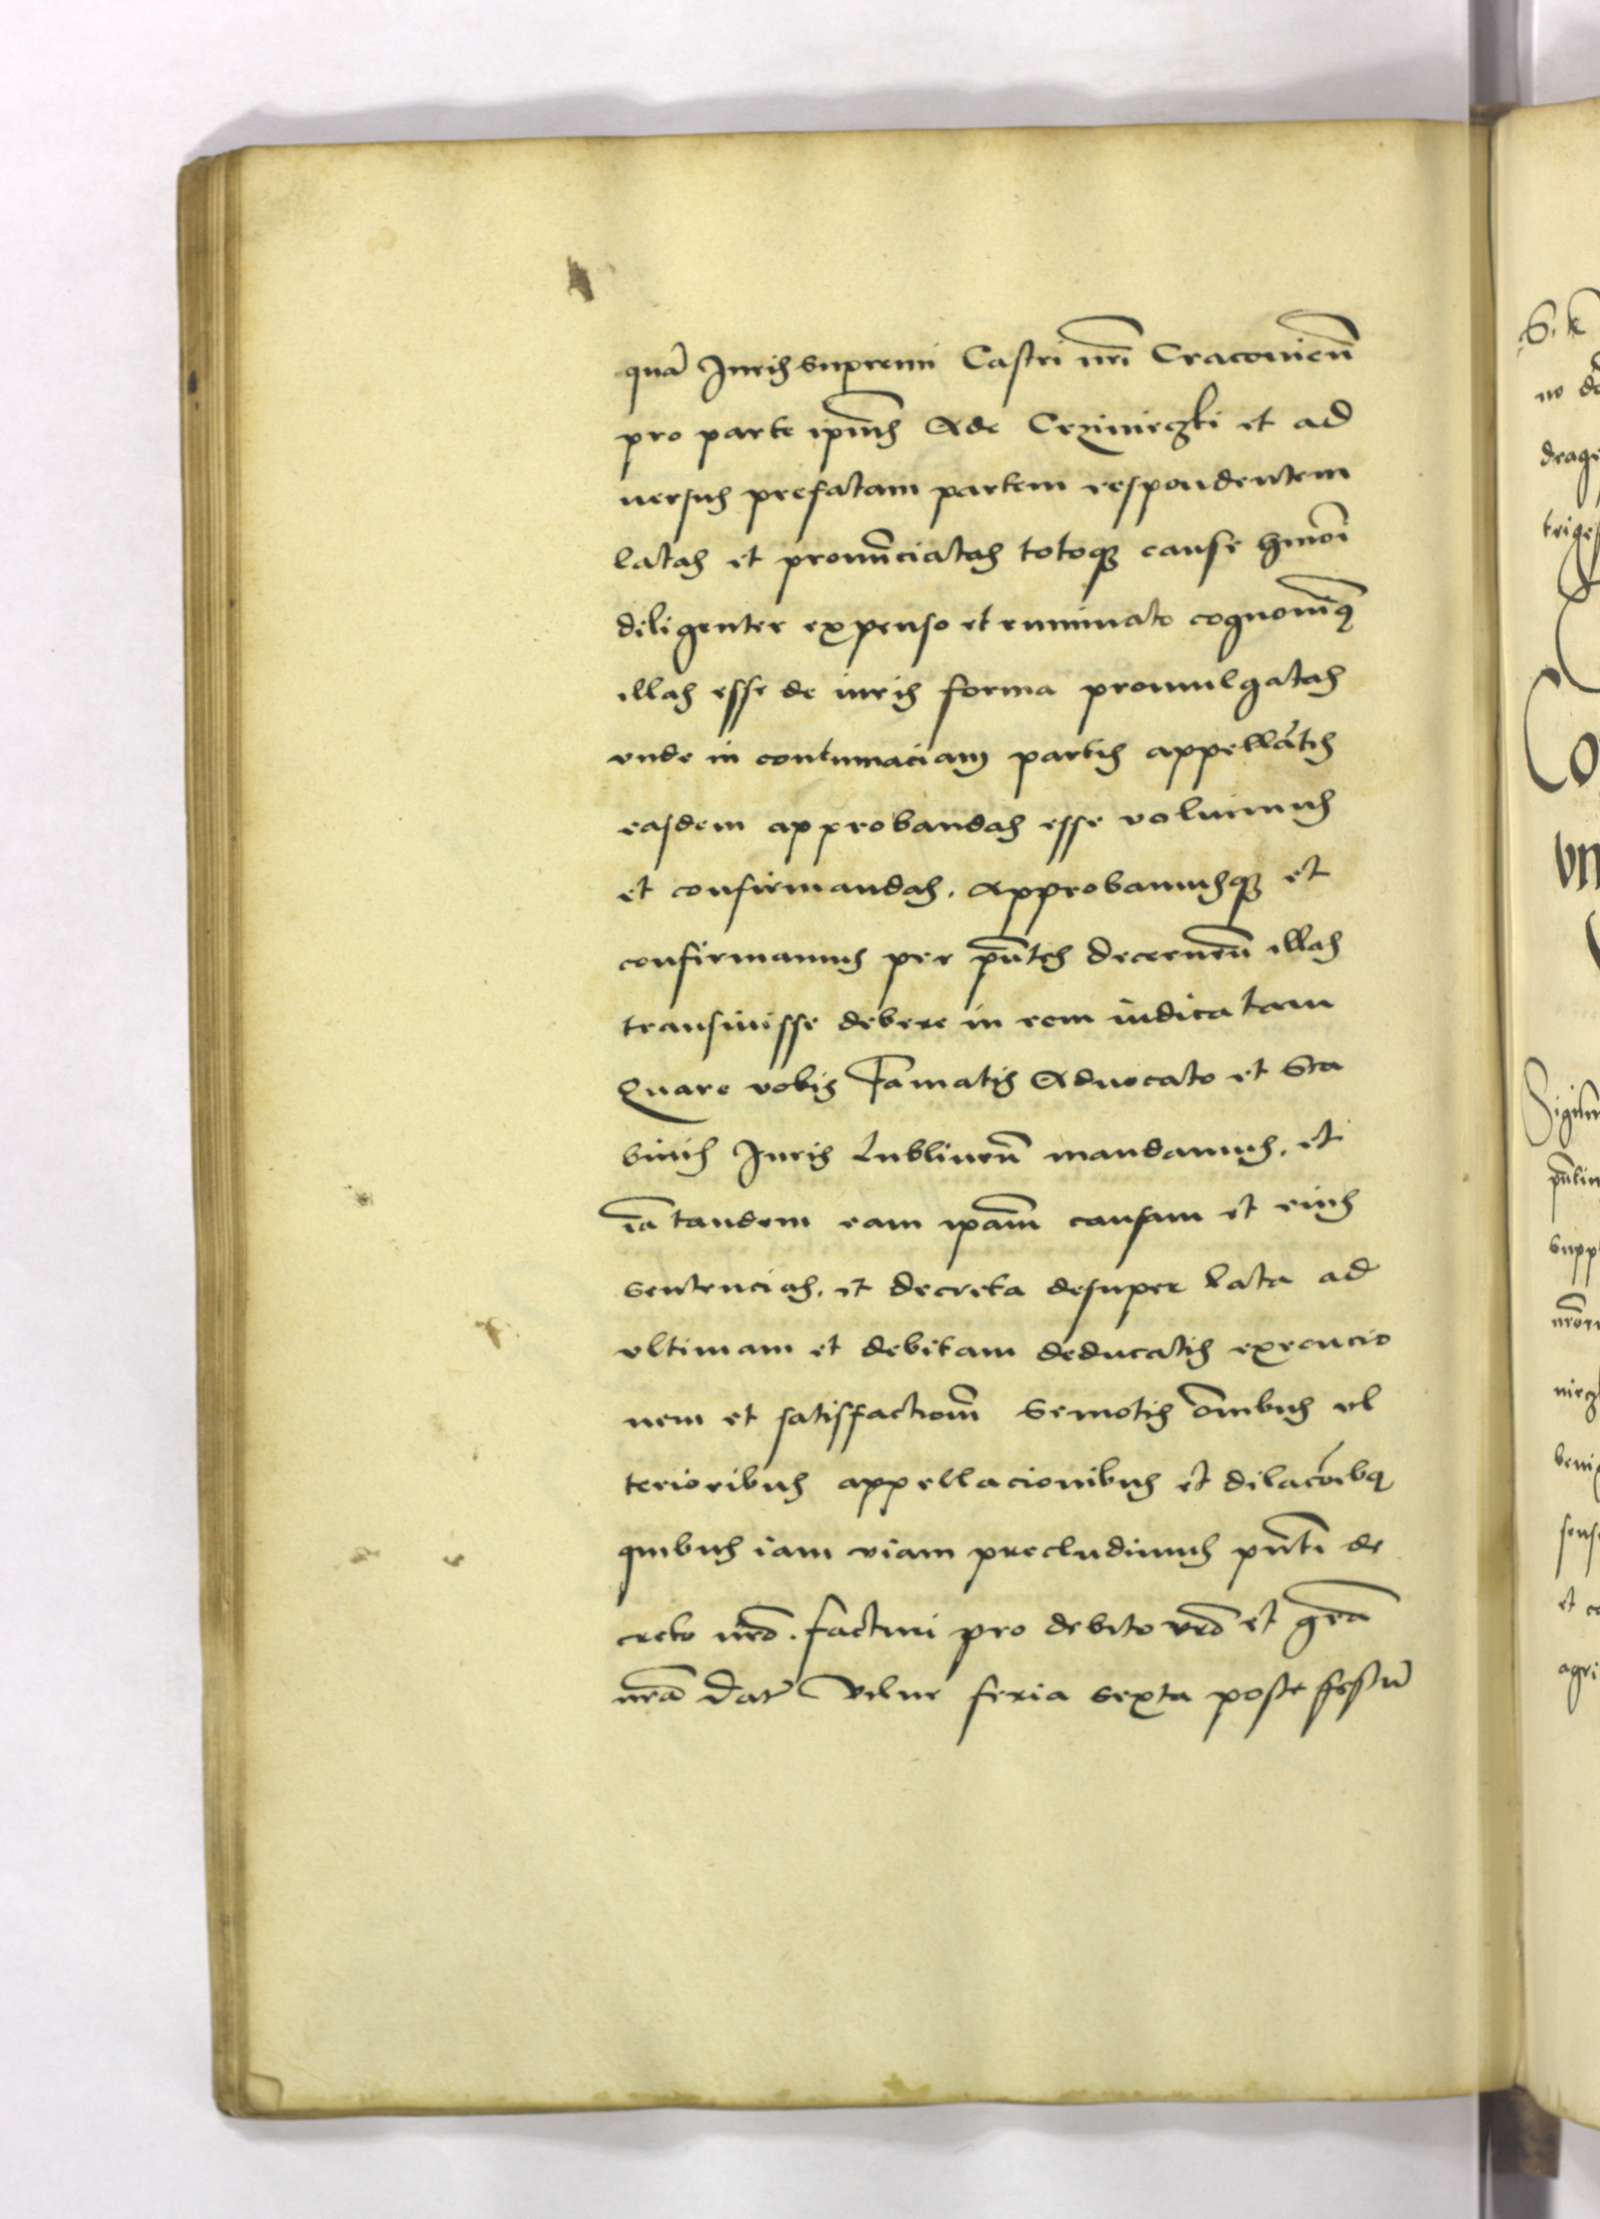 quā Juris supremi Castri nr̄i Cracouien̄
pro parte ip̄ius Ade Crziniezki et ad
uersus prefatam partem respondentem
latas et pronūciatas totoq₃ cause hmōi
diligenter expenso et ruminato cognouim̄q
illas esse de iuris forma promulgatas
vnde in contumaciam partis appellātis
easdem approbandas esse voluimus
et confirmandas. Approbamusq₃ et
confirmamus per pn̄tes decernen̄ illas
transiuisse debere in rem iudicatam
Quare vobis Famatis Aduocato et Sca
binis Juris Lublinen̄ mandamus, et
iā tandem eam ip̄am causam et eius
sentencias, et decreta desuper lata ad
vltimam et debitam deducatis execucio
nem et satisfactiom̄ Semotis om̄ibus vl
terioribus appellacionibus et dilacōibq
quibus iam viam precludimus pn̄ti de
creto nr̄o. facturi pro debito vr̄o et gr̄a
nr̄a Dat̄ Vilne feria sexta post festū
S. k
no
drage
trige
Co
vn
Sigilm̄
pn̄tin
supp
nr̄or
niez
beni
sens
et c
agri